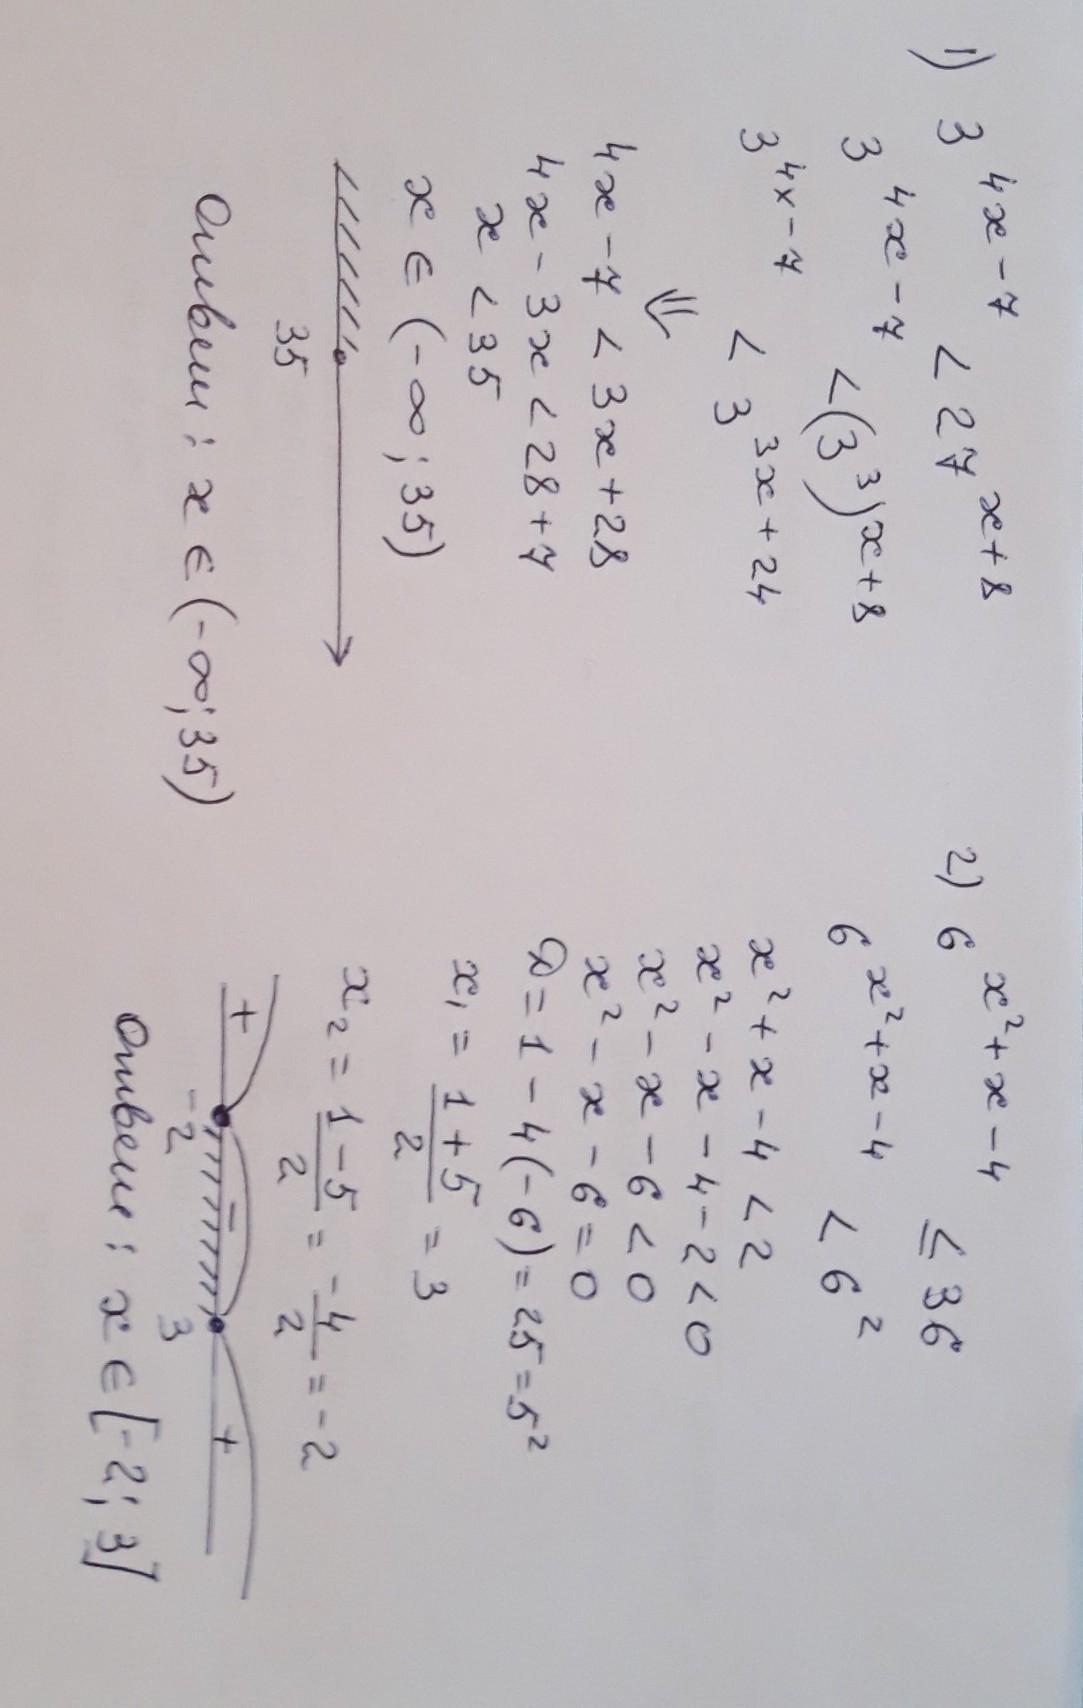 1) 3^{4x-7} < 27^{x+8}
3^{4x-7} < (3^3)^{x+8}
3^{4x-7} < 3^{3x+24}
⇓
4x - 7 < 3x + 28
4x - 3x < 28 + 7
x < 35
x ∈ (-∞; 35)
35
Ответ: x ∈ (-∞; 35)
2) 6^{x²+x-4} ≤ 36
6^{x²+x-4} < 6²
x² + x - 4 < 2
x² - x - 4 - 2 < 0
x² - x - 6 < 0
x² - x - 6 = 0
D = 1 - 4(-6) = 25 = 5²
x₁ = \frac{1+5}{2} = 3
x₂ = \frac{1-5}{2} = -\frac{4}{2} = -2
+ - +
-2 3
Ответ: x ∈ [-2; 3]